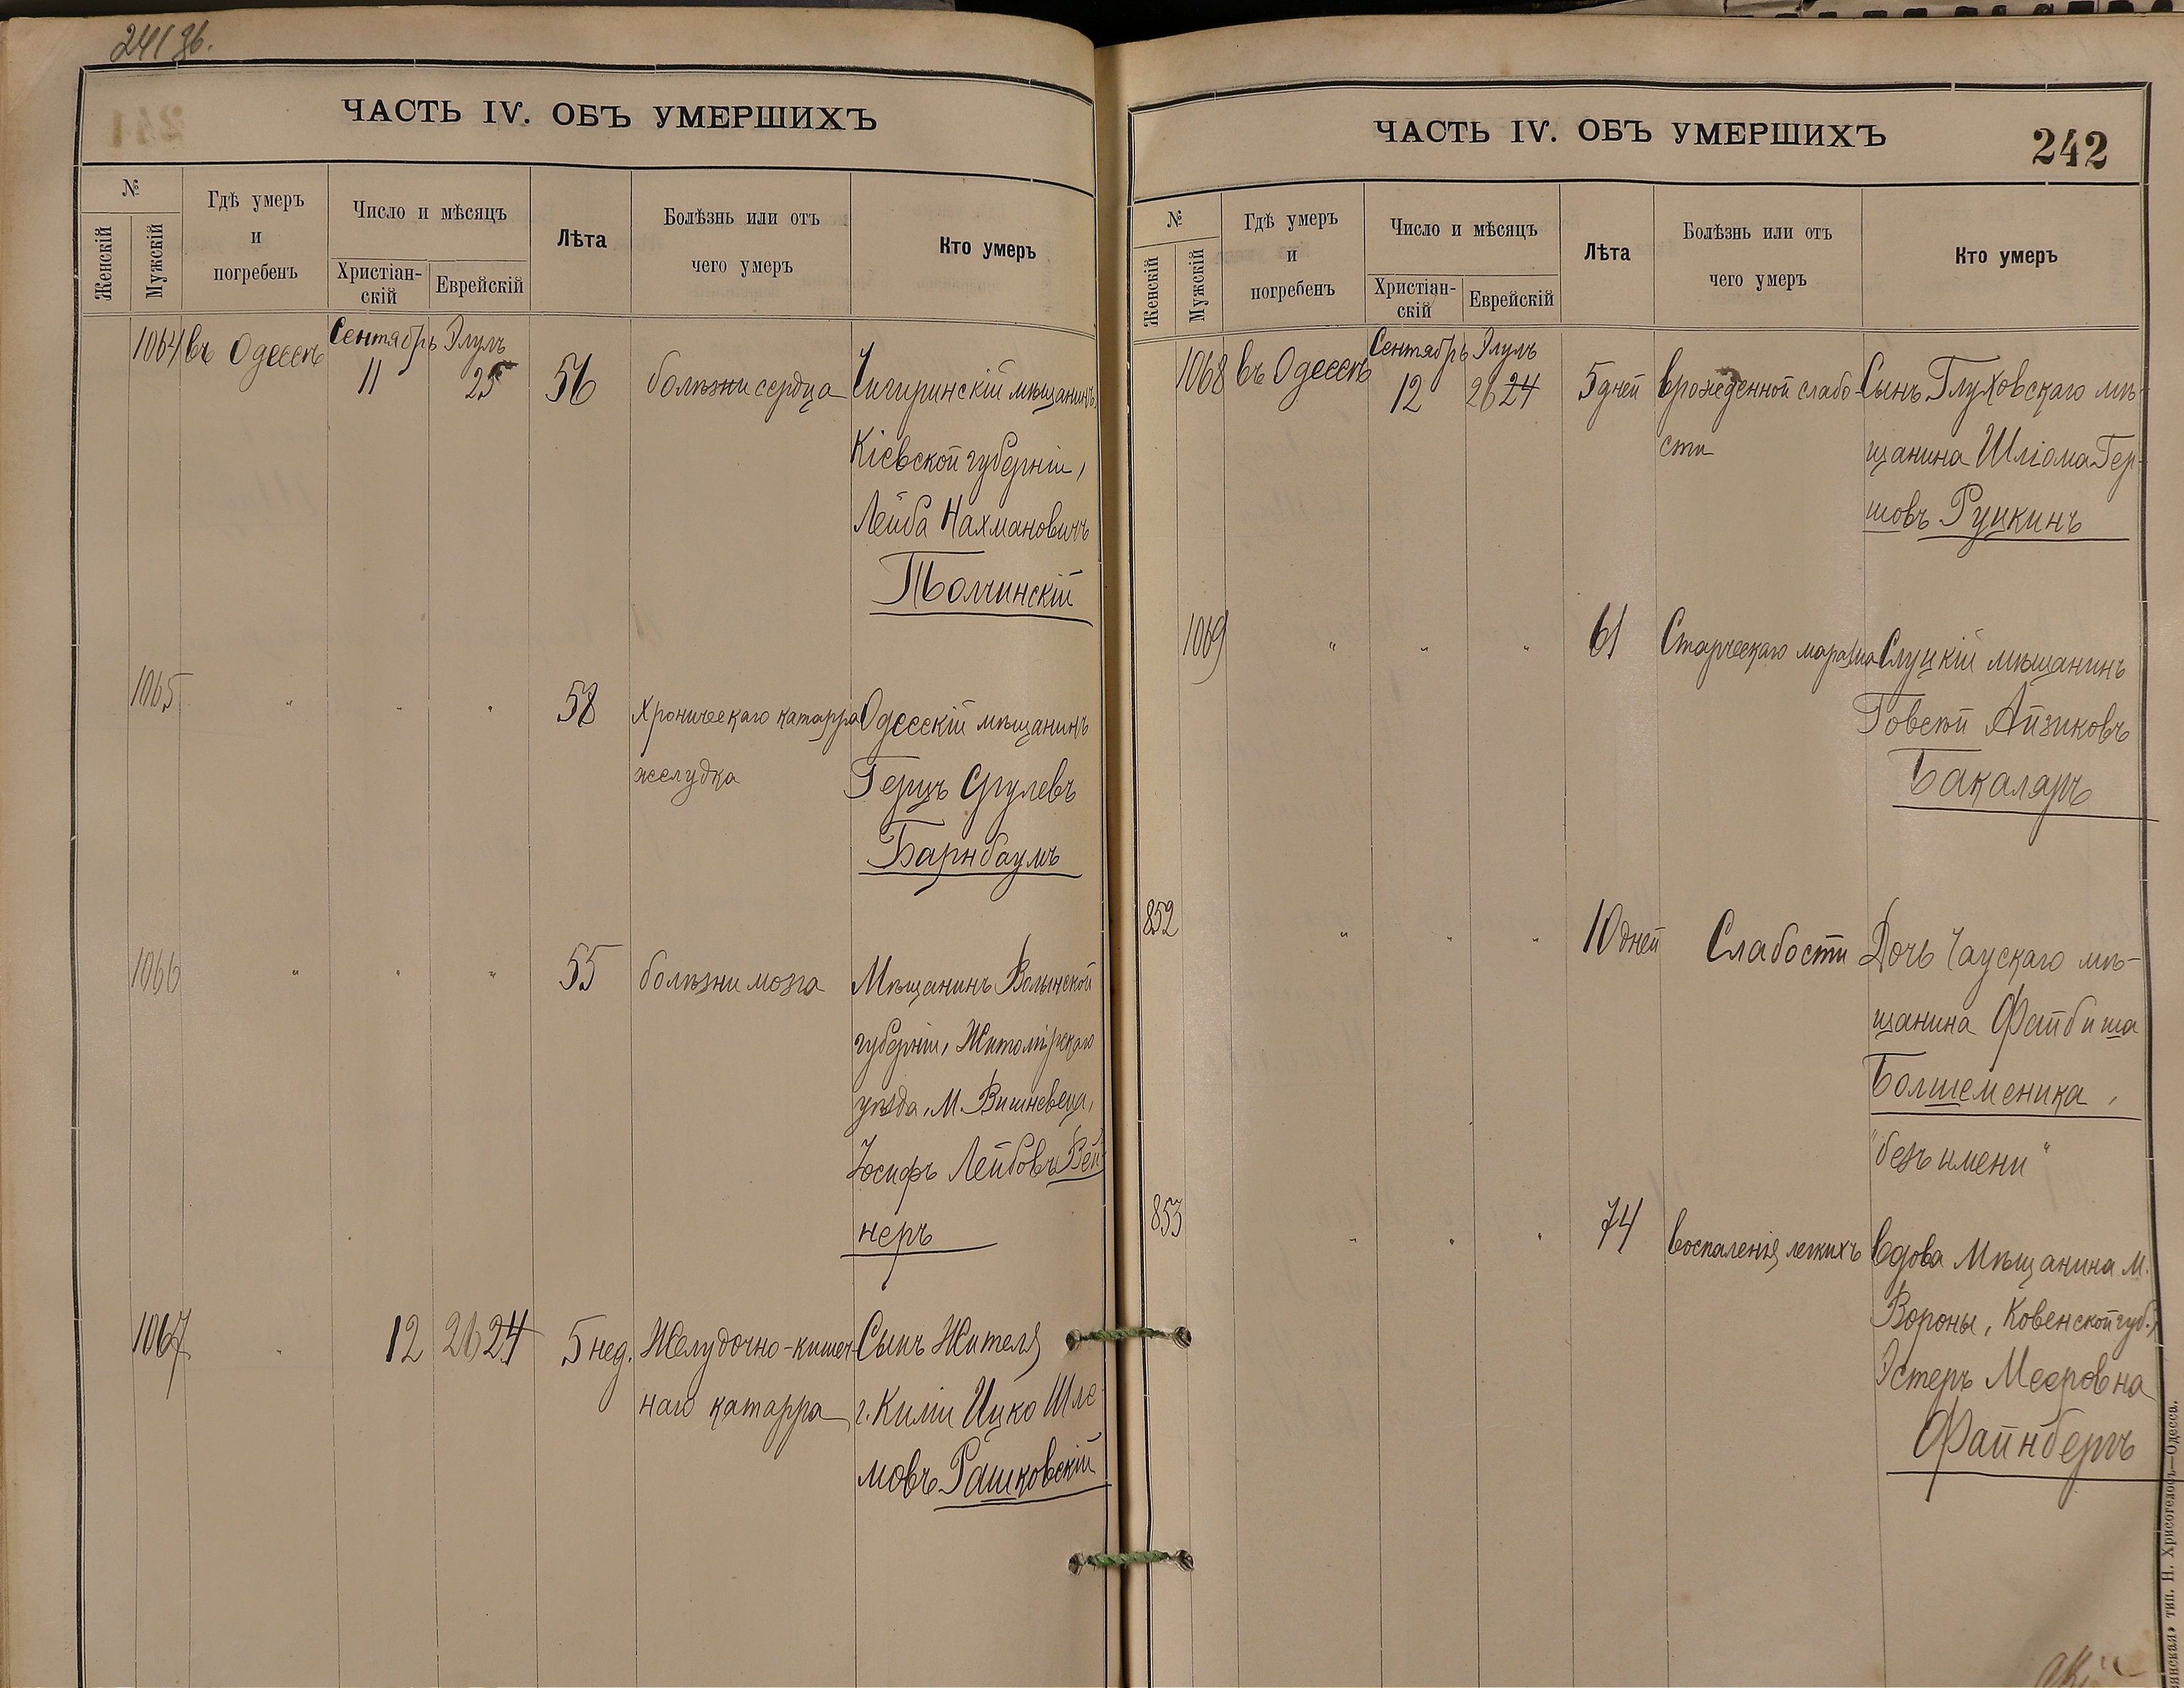 241 об.
ЧАСТЬ IV. ОБЪ УМЕРШИХЪ
№
Женскій
Мужскій
Гдѣ умеръ
и
погребенъ
Число и мѣсяцъ
Христіан-
скій
Еврейскій
Лѣта
Болѣзнь или отъ
чего умеръ
Кто умеръ
1064 въ Одессѣ Сентябрь 11 Элулъ 25 56 болѣзни сердца Чигиринскій мѣщанинъ,
Кіевской губерніи,
Лейба Нахмановичъ
Толчинскій
1065 " " " 58 Хроническаго катарра Одесскій мѣщанинъ
желудка Герцъ Срулевъ
Барнбаумъ
1066 " " " 55 болѣзни мозга Мѣщанинъ Волынской
губерніи, Житомірскаго
уѣзда, М. Вишневеца,
Іосифъ Лейбовъ Вей-
неръ
1067 " 12 26 24 5 нед. Желудочно-кишеч- Сынъ Жителя
наго катарра г. Киліи Ицко Шле-
мовъ Рашковскій
ЧАСТЬ IV. ОБЪ УМЕРШИХЪ
242
№
Женскій
Мужскій
Гдѣ умеръ
и
погребенъ
Число и мѣсяцъ
Христіан-
скій
Еврейскій
Лѣта
Болѣзнь или отъ
чего умеръ
Кто умеръ
1068 въ Одессѣ Сентябрь 12 Элулъ 26 24 5 дней врожденной слабо- Сынъ Глуховскаго мѣ-
сти щанина Шліома Гер-
шовъ Руцкинъ
1069 " " " 61 Старческаго маразма Слуцкій мѣщанинъ
Айзиковъ
Бакаляръ
852 " " " 10 дней Слабости Дочь Чаускаго мѣ-
щанина Файбиша
Болшеменика,
"безъ имени"
853 " " " 74 воспаленія легкихъ вдова Мѣщанина М.
Вороны, Ковенской губ.,
Эстеръ Мееровна
Файнбергъ
тип. Н. Хрисогелосъ—Одесса.